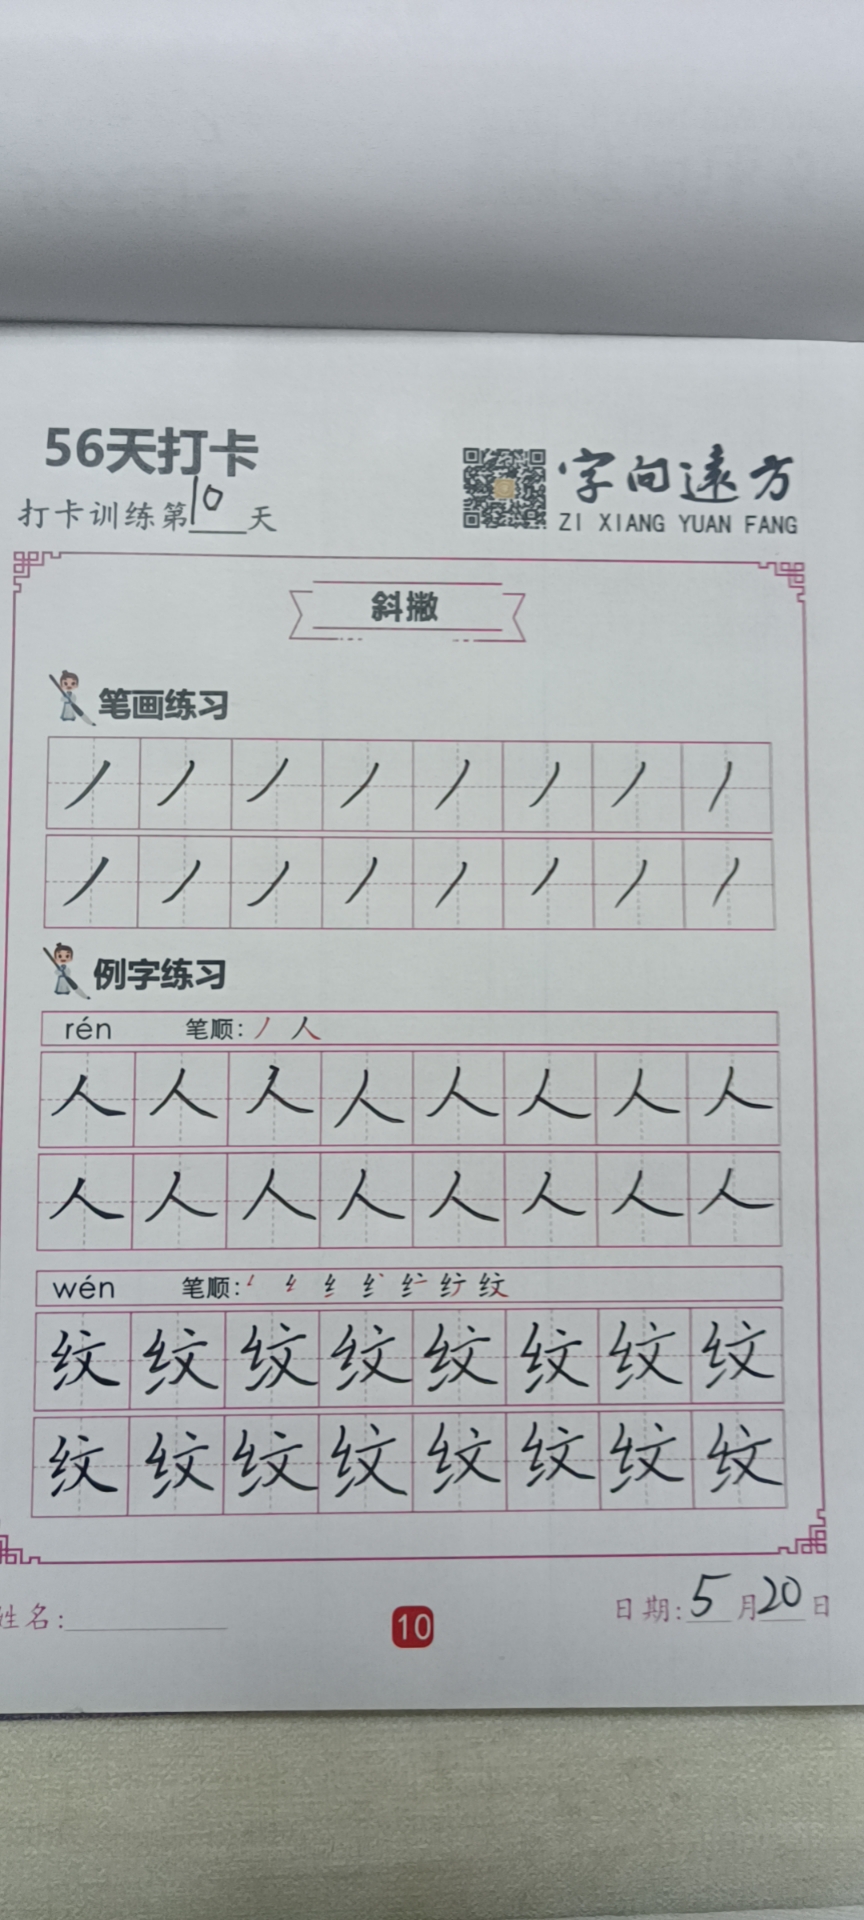 56天打卡
打卡训练第10天
字向远方
ZI XIANG YUAN FANG
斜撇
笔画练习
丿 丿 丿 丿 丿 丿 丿 丿
丿 丿 丿 丿 丿 丿 丿 丿
例字练习
rén 笔顺: 丿 人
人 人 人 人 人 人 人 人
人 人 人 人 人 人 人 人
wén 笔顺: 纹
纹 纹 纹 纹 纹 纹 纹 纹
纹 纹 纹 纹 纹 纹 纹 纹
姓名:
10
日期: 5月20日